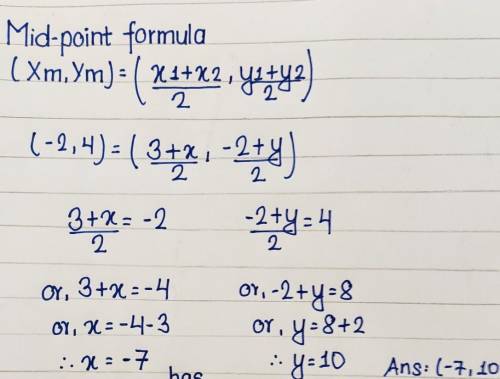 Mid-point formula
(Xm, Ym) = ( x1+x2/2 , y1+y2/2 )
(-2,4) = ( 3+x/2 , -2+y/2 )
3+x/2 = -2    -2+y/2 = 4
or, 3+x = -4    or, -2+y = 8
or, x = -4-3    or, y = 8+2
∴ x = -7    ∴ y = 10    Ans: (-7, 10